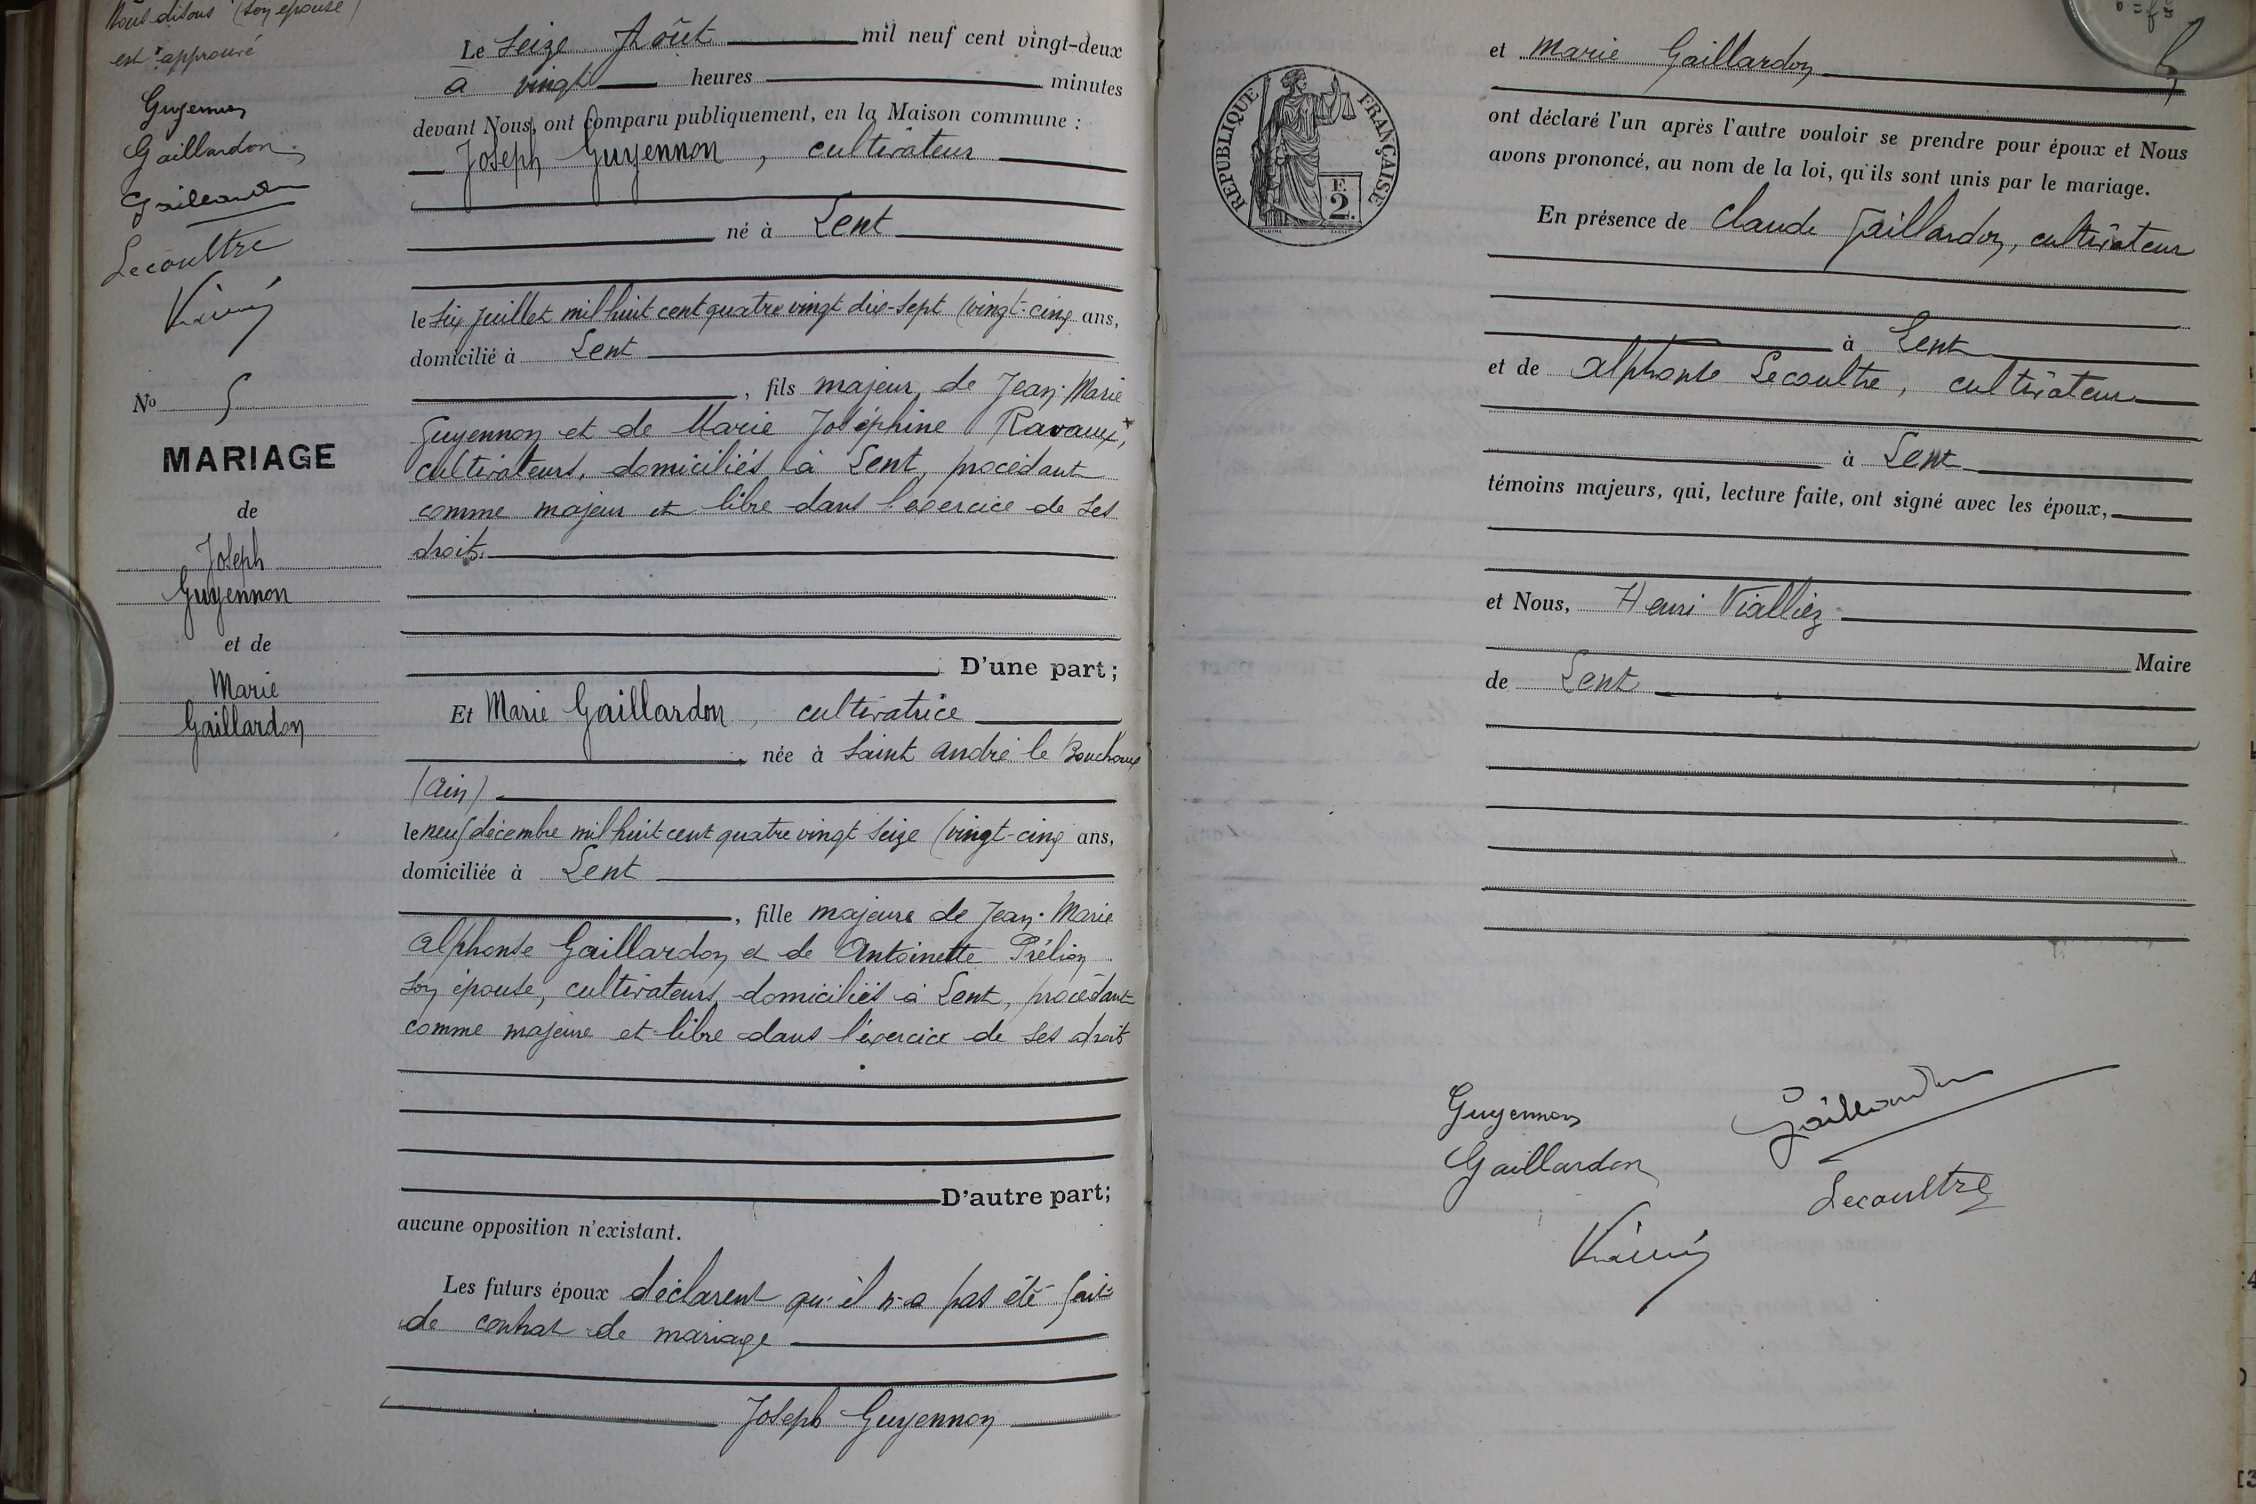 Nous disons (son épouse)
est approuvé
Guyennon
Gaillardon
Gaillardon
Lecoultre
No 5
MARIAGE
de
Joseph
Guyennon
et de
Marie
Gaillardon
Le Seize Août mil neuf cent vingt-deux
à vingt heures minutes
devant Nous, ont comparu publiquement, en la Maison commune :
Joseph Guyennon, cultivateur
né à Lent
le six juillet mil huit cent quatre vingt dix-sept (vingt-cinq ans,
domicilié à Lent
, fils majeur de Jean-Marie
Guyennon et de Marie Joséphine Ravaux,
cultivateurs, domiciliés à Lent, procédant
comme majeur et libre dans l'exercice de ses
droits.
D'une part ;
Et Marie Gaillardon, cultivatrice
née à Saint André le Bouchoux
(Ain)
le neuf décembre mil huit cent quatre vingt seize (vingt-cinq ans,
domiciliée à Lent
, fille majeure de Jean-Marie
Alphonse Gaillardon et de Antoinette Prélion
son épouse, cultivateurs domiciliés à Lent, procédant
comme majeure et libre dans l'exercice de ses droits
D'autre part;
aucune opposition n'existant.
Les futurs époux déclarent qu'il n'a pas été fait
de contrat de mariage
Joseph Guyennon
et Marie Gaillardon
RÉPUBLIQUE FRANÇAISE
F.
2.
ont déclaré l'un après l'autre vouloir se prendre pour époux et Nous
avons prononcé, au nom de la loi, qu'ils sont unis par le mariage.
En présence de Claude Gaillardon, cultivateur
à Lent
et de Alphonse Lecoultre, cultivateur
à Lent
témoins majeurs, qui, lecture faite, ont signé avec les époux,
et Nous, Henri Vialliez
Maire
de Lent
Guyennon
Gaillardon
Gaillardon
Lecoultre